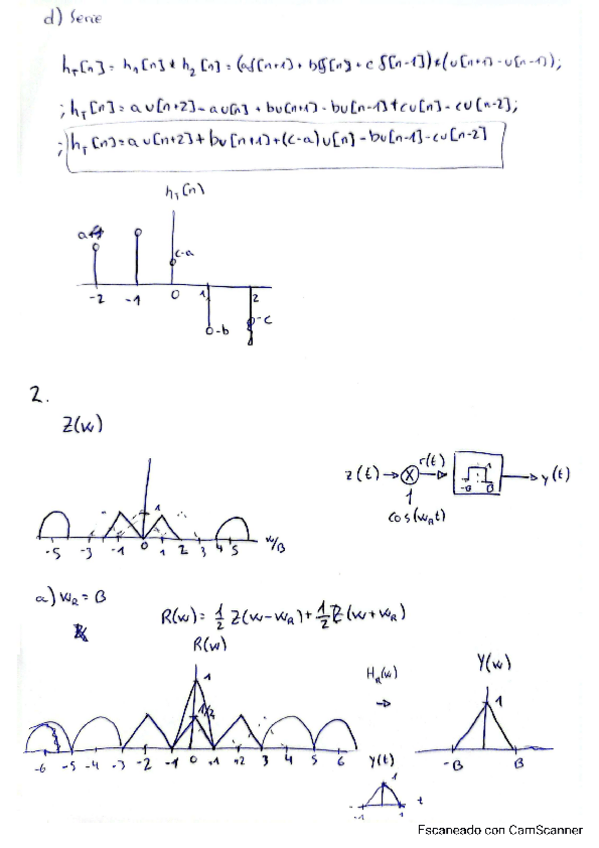 d) Serie
h_T[n] = h_1[n] * h_2[n] = (aδ[n+1] + bδ[n] + c δ[n-1]) * (u[n+1] - u[n-1]);
; h_T[n] = a u[n+2] - a u[n] + bu[n+1] - bu[n-1] + cu[n] - cu[n-2];
; h_T[n] = a u[n+2] + bu[n+1] + (c-a) u[n] - bu[n-1] - cu[n-2]
h_1[n]
a
c-a
-2 -1 0 1 2
-b
-c
2.
Z(w)
1
-5 -3 -1 0 1 2 3 4 5 w/B
z(t) → ⊗ r(t) → 1 -B B → y(t)
cos(w_R t)
a) w_R = B
R(w) = 1/2 Z(w-w_R) + 1/2 Z(w+w_R)
R(w)
1
1/2
-6 -5 -4 -3 -2 -1 0 1 2 3 4 5 6
H_R(w)
→
Y(w)
1
-B B
Y(t)
1
-1 1 t
Escaneado con CamScanner